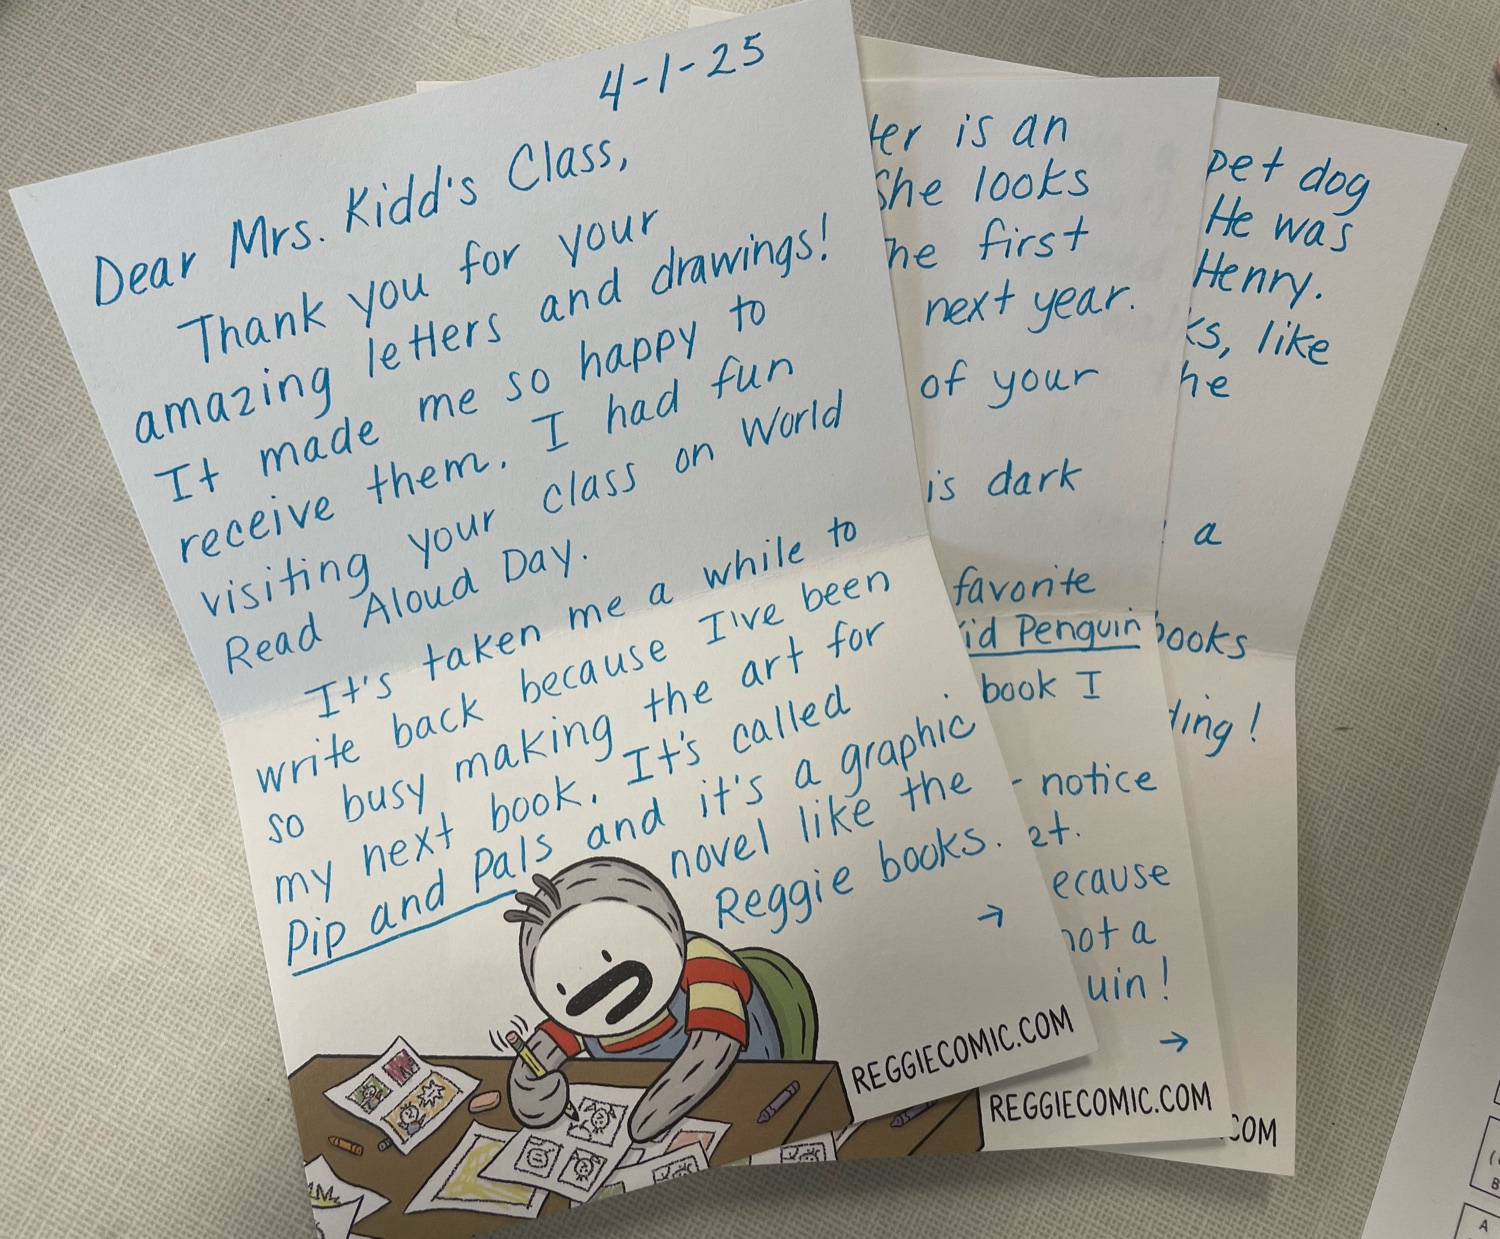 4-1-25
Dear Mrs. Kidd's Class,
Thank you for your
amazing letters and drawings!
It made me so happy to
receive them. I had fun
visiting your class on World
Read Aloud Day.
It's taken me a while to
write back because I've been
so busy making the art for
my next book. It's called
Pip and Pals and it's a graphic
novel like the
Reggie books.
→
REGGIECOMIC.COM
is an
She looks
first
next year.
of your
is dark
favorite
Penguin
book I
notice
not a
→
REGGIECOMIC.COM
pet dog
He was
Henry.
like
a
books